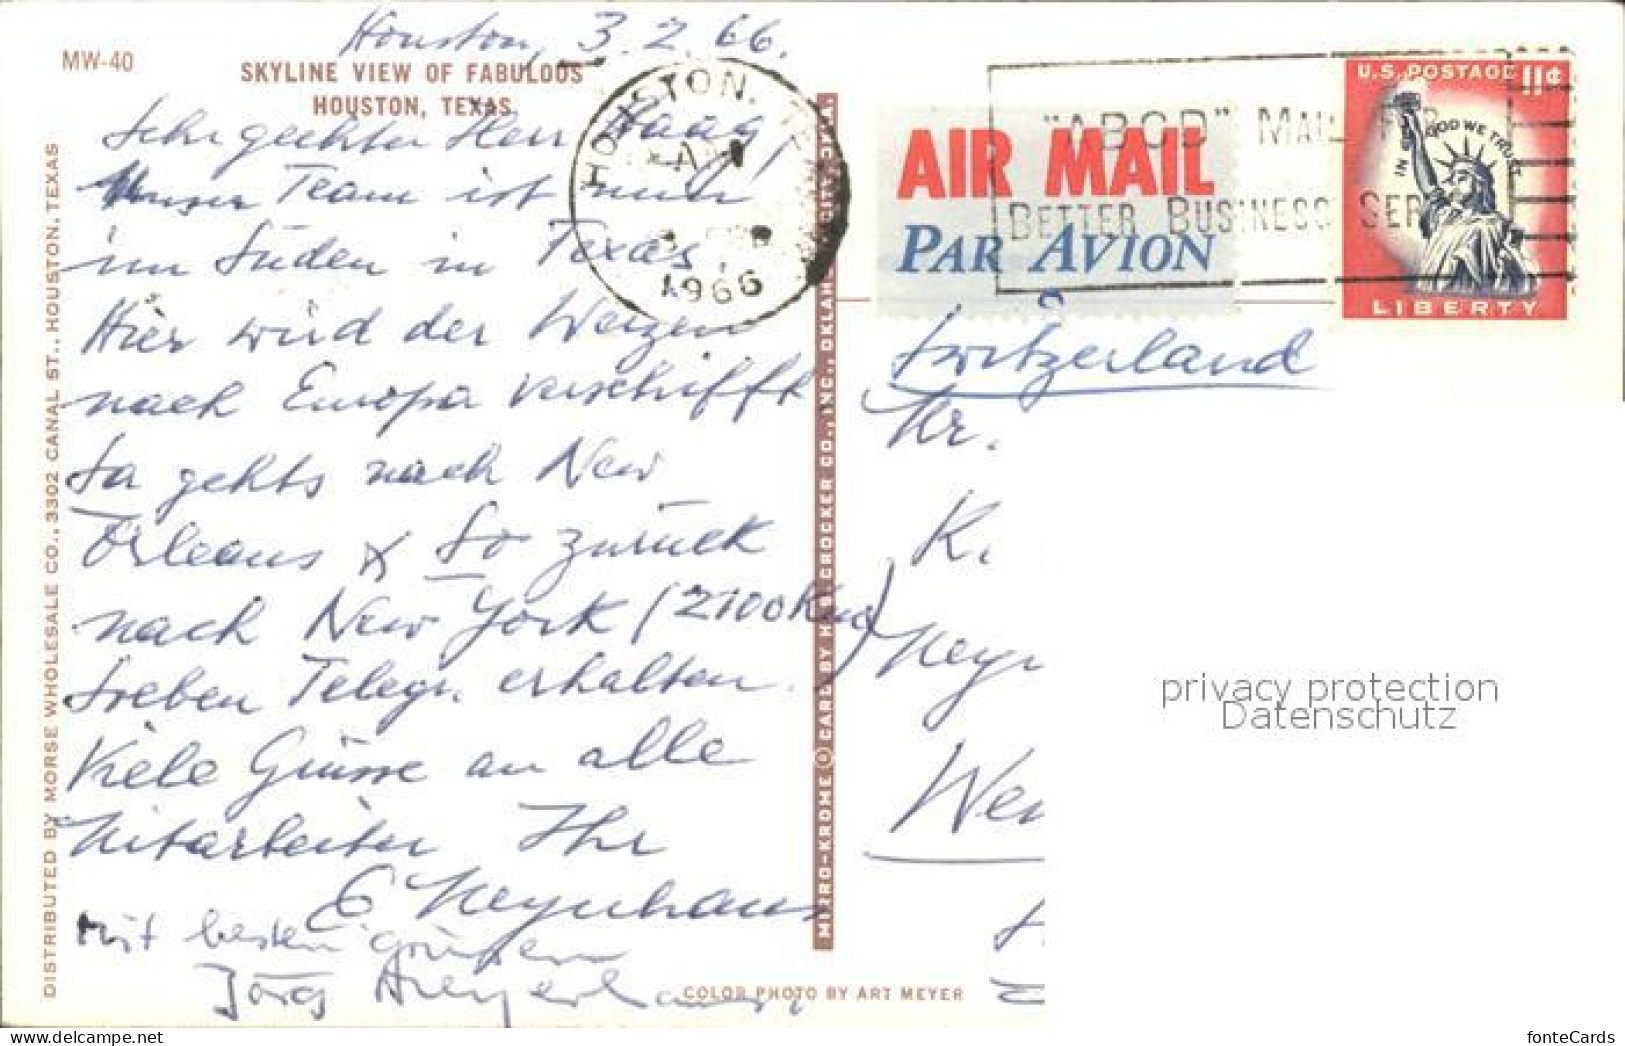 Houston, 3.2.66.
MW-40
SKYLINE VIEW OF FABULOUS
HOUSTON, TEXAS
Sehr geehrter Herr Haag,
Unser Team ist nun
im Süden in Texas,
Hier wird der Weizen
nach Europa verschifft
Sa gehts nach New
Orleans & So zurück
nach New York (2100 km)
Sieben Telegr. erhalten.
Viele Grüsse an alle
Mitarbeiter Ihr
E.
Mit besten grüssen
Jörg
DISTRIBUTED BY MORSE WHOLESALE CO., 3302 CANAL ST., HOUSTON, TEXAS
MIRRO-KROME ® CARD BY H.S. CROCKER CO., INC., OKLAHOMA CITY, OKLA.
COLOR PHOTO BY ART MEYER
HOUSTON, TEX
1966
AIR MAIL
PAR AVION
"ABCD" MAIL FOR
BETTER BUSINESS SER
U.S. POSTAGE 11¢
IN GOD WE TRUST
LIBERTY
Switzerland
Hr.
K.
privacy protection
Datenschutz
fonteCards